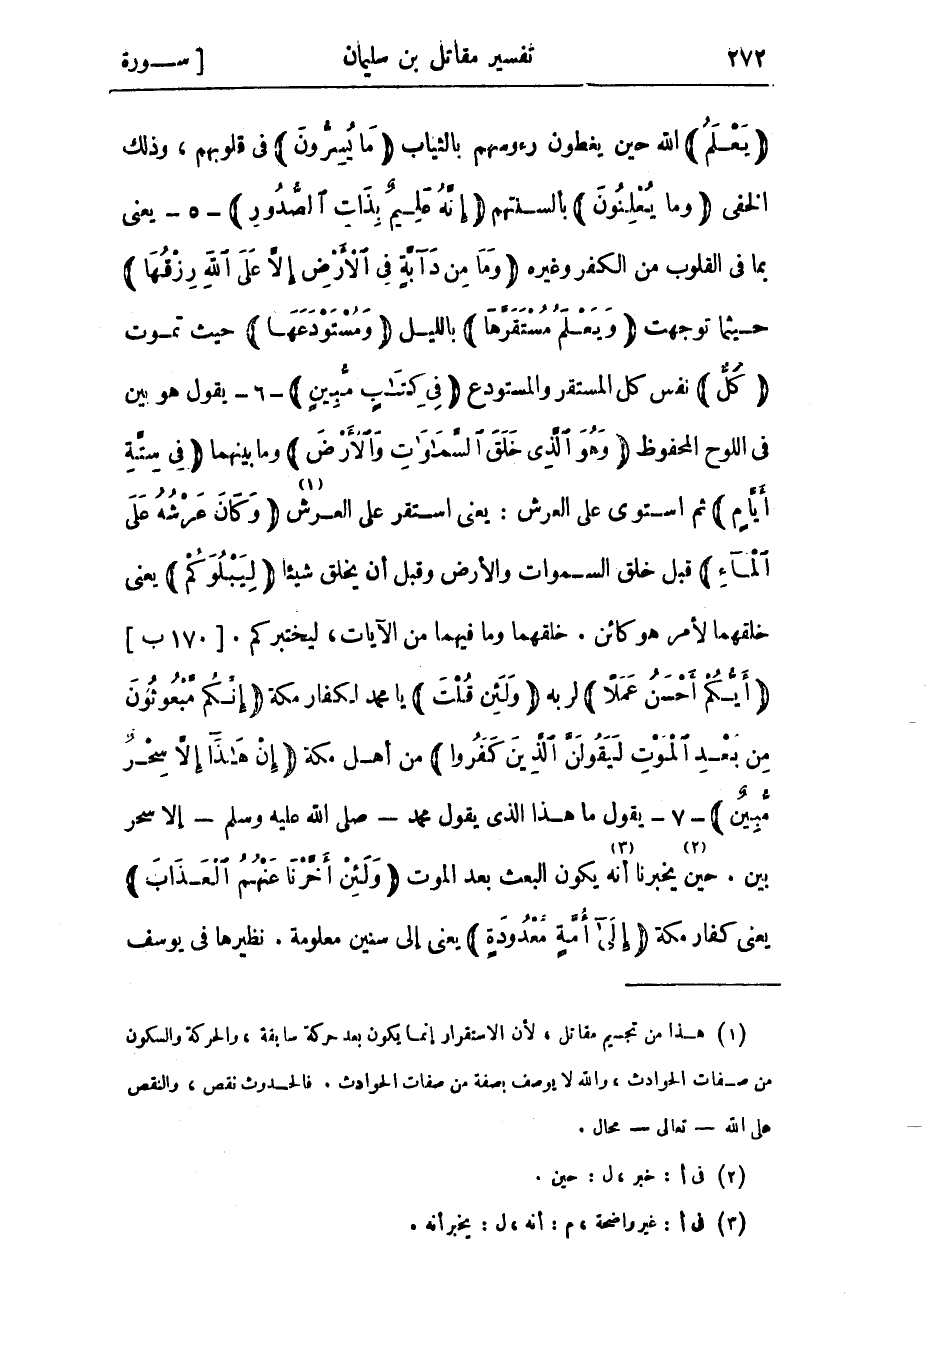 ٢٧٢ تفسير مقاتل بن سليمان [ ســورة
( يَعْـلَمُ ) الله حين يغطون رءوسهم بالثياب ( مَا يُسِرُّونَ ) فى قلوبهم ، وذلك
الخفى ( وما يُعْلِنُونَ ) بألسـنتهم ( إِنَّهُ عَلِـيمٌ بِذَاتِ ٱلصُّدُورِ ) ـ ٥ ـ يعنى
بما فى القلوب من الكفر وغيره ( وَمَا مِن دَآبَّةٍ فِى ٱلْأَرْضِ إِلَّا عَلَى ٱللهِ رِزْقُهَا )
حـيثما توجهت ( وَيَعْـلَمُ مُسْتَقَرَّهَا ) بالليـل ( وَمُسْتَوْدَعَهَـا ) حيث تمـوت
( كُلٌّ ) نفس كل المستقر والمستودع ( فِى كِتَـٰبٍ مُّبِينٍ ) ـ ٦ ـ يقول هو بين
فى اللوح المحفوظ ( وَهُوَ ٱلَّذِى خَلَقَ ٱلسَّمَـٰوَٰتِ وَٱلْأَرْضَ ) وما بينهما ( فِى سِتَّةِ
أَيَّامٍ ) ثم اسـتوى على العرش : يعنى اسـتقر على العـرش (١) ( وَكَانَ عَرْشُهُ عَلَى
ٱلْمَـآءِ ) قبل خلق السـموات والأرض وقبل أن يخلق شيئا ( لِيَبْلُوَكُمْ ) يعنى
خلقهما لأمر هو كائن . خلقهما وما فيهما من الآيات ، ليختبركم . [ ١٧٠ ب ]
( أَيُّـكُمْ أَحْسَنُ عَمَلًا ) لربه ( وَلَئِن قُلْتَ ) يا محمد لكفار مكة ( إِنَّـكُم مَّبْعُوثُونَ
مِن بَعْـدِ ٱلْمَوْتِ لَيَقُولَنَّ ٱلَّذِينَ كَفَرُوا ) من أهـل مكة ( إِنْ هَـٰذَآ إِلَّا سِحْـرٌ
مُّبِينٌ ) ـ ٧ ـ يقول ما هـذا الذى يقول محمد — صلى الله عليه وسلم — إلا سحر
بين . حين (٢) يخبرنا أنه (٣) يكون البعث بعد الموت ( وَلَئِنْ أَخَّرْنَا عَنْهُمُ ٱلْعَـذَابَ )
يعنى كفار مكة ( إِلَىٰٓ أُمَّةٍ مَّعْدُودَةٍ ) يعنى إلى سنين معلومة . نظيرها فى يوسف
(١) هـذا من تجسيم مقاتل ، لأن الاستقرار إنمـا يكون بعد حركة سابقة ، والحركة والسكون
من صـفات الحوادث ، والله لا يوصف بصفة من صفات الحوادث . فالحـدوث نقص ، والنقص
على الله — تعالى — محال .
(٢) فى أ : خبر ، ل : حين .
(٣) فى أ : غير واضحة ، م : أنه ، ل : يخبر أنه .